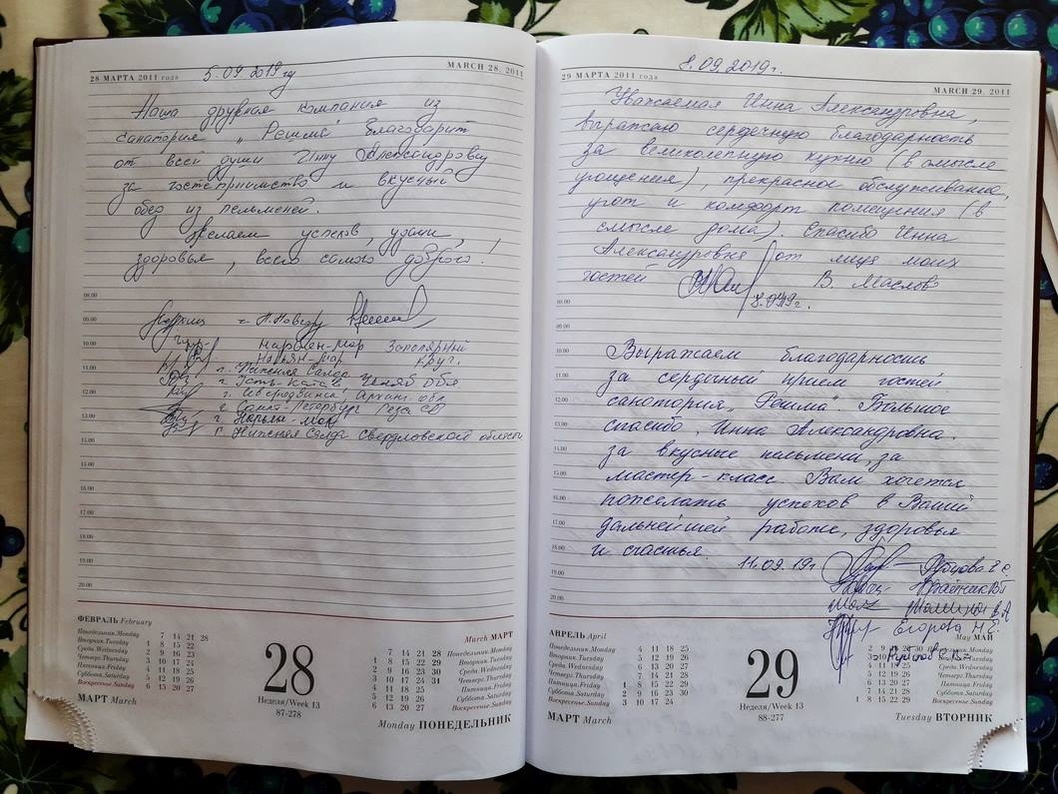 28 МАРТА 2011 года
5.09.2019 г.
MARCH 28, 2011
Наша дружная компания из
санатория „Решма" благодарит
от всей души Инну Александровну
за гостеприимство и вкусный
обед из пельменей.
Желаем успехов, удачи,
здоровья, всего самого доброго!
08.00
09.00
10.00
Нарьян-Мар Заполярный
Нарьян-Мар
11.00
г. Нижняя Салда
г. Усть-Катав Челяб обл
12.00
г. Северодвинск, Арханг. обл
г. Санкт-Петербург
13.00
г. Нарьян-Мар
г. Нижняя Салда Свердловской области
14.00
15.00
16.00
17.00
18.00
19.00
20.00
ФЕВРАЛЬ February
Понедельник.Monday 7 14 21 28
Вторник.Tuesday 1 8 15 22
Среда.Wednesday 2 9 16 23
Четверг.Thursday 3 10 17 24
Пятница.Friday 4 11 18 25
Суббота.Saturday 5 12 19 26
Воскресенье.Sunday 6 13 20 27
МАРТ March
28
Неделя/Week 13
87-278
March МАРТ
7 14 21 28 Понедельник.Monday
1 8 15 22 29 Вторник.Tuesday
2 9 16 23 30 Среда.Wednesday
3 10 17 24 31 Четверг.Thursday
4 11 18 25 Пятница.Friday
5 12 19 26 Суббота.Saturday
6 13 20 27 Воскресенье.Sunday
Monday ПОНЕДЕЛЬНИК
29 МАРТА 2011 года
8.09.2019г.
MARCH 29, 2011
Уважаемая Инна Александровна,
выражаю сердечную благодарность
за великолепную кухню (в смысле
угощения), прекрасное обслуживание,
уют и комфорт помещения (в
смысле дома). Спасибо Инна
Александровна от лица моих
гостей В. Маслов
08.00
09.00
10.00
Выражаем благодарность
11.00
за сердечный прием гостей
12.00
санатория „Решма". Большое
13.00
спасибо, Инна Александровна.
14.00
за вкусные пельмени, за
15.00
мастер-класс Вам хочется
16.00
пожелать успехов в Вашей
17.00
дальнейшей работе, здоровья
18.00
и счастья.
11.09.19г
19.00
20.00
Егорова Н.Е.
АПРЕЛЬ April
Понедельник.Monday 4 11 18 25
Вторник.Tuesday 5 12 19 26
Среда.Wednesday 6 13 20 27
Четверг.Thursday 7 14 21 28
Пятница.Friday 1 8 15 22 29
Суббота.Saturday 2 9 16 23 30
Воскресенье.Sunday 3 10 17 24
МАРТ March
29
Неделя/Week 13
88-277
May МАЙ
2 9 16 23 30 Понедельник.Monday
3 10 17 24 31 Вторник.Tuesday
4 11 18 25 Среда.Wednesday
5 12 19 26 Четверг.Thursday
6 13 20 27 Пятница.Friday
7 14 21 28 Суббота.Saturday
1 8 15 22 29 Воскресенье.Sunday
Tuesday ВТОРНИК